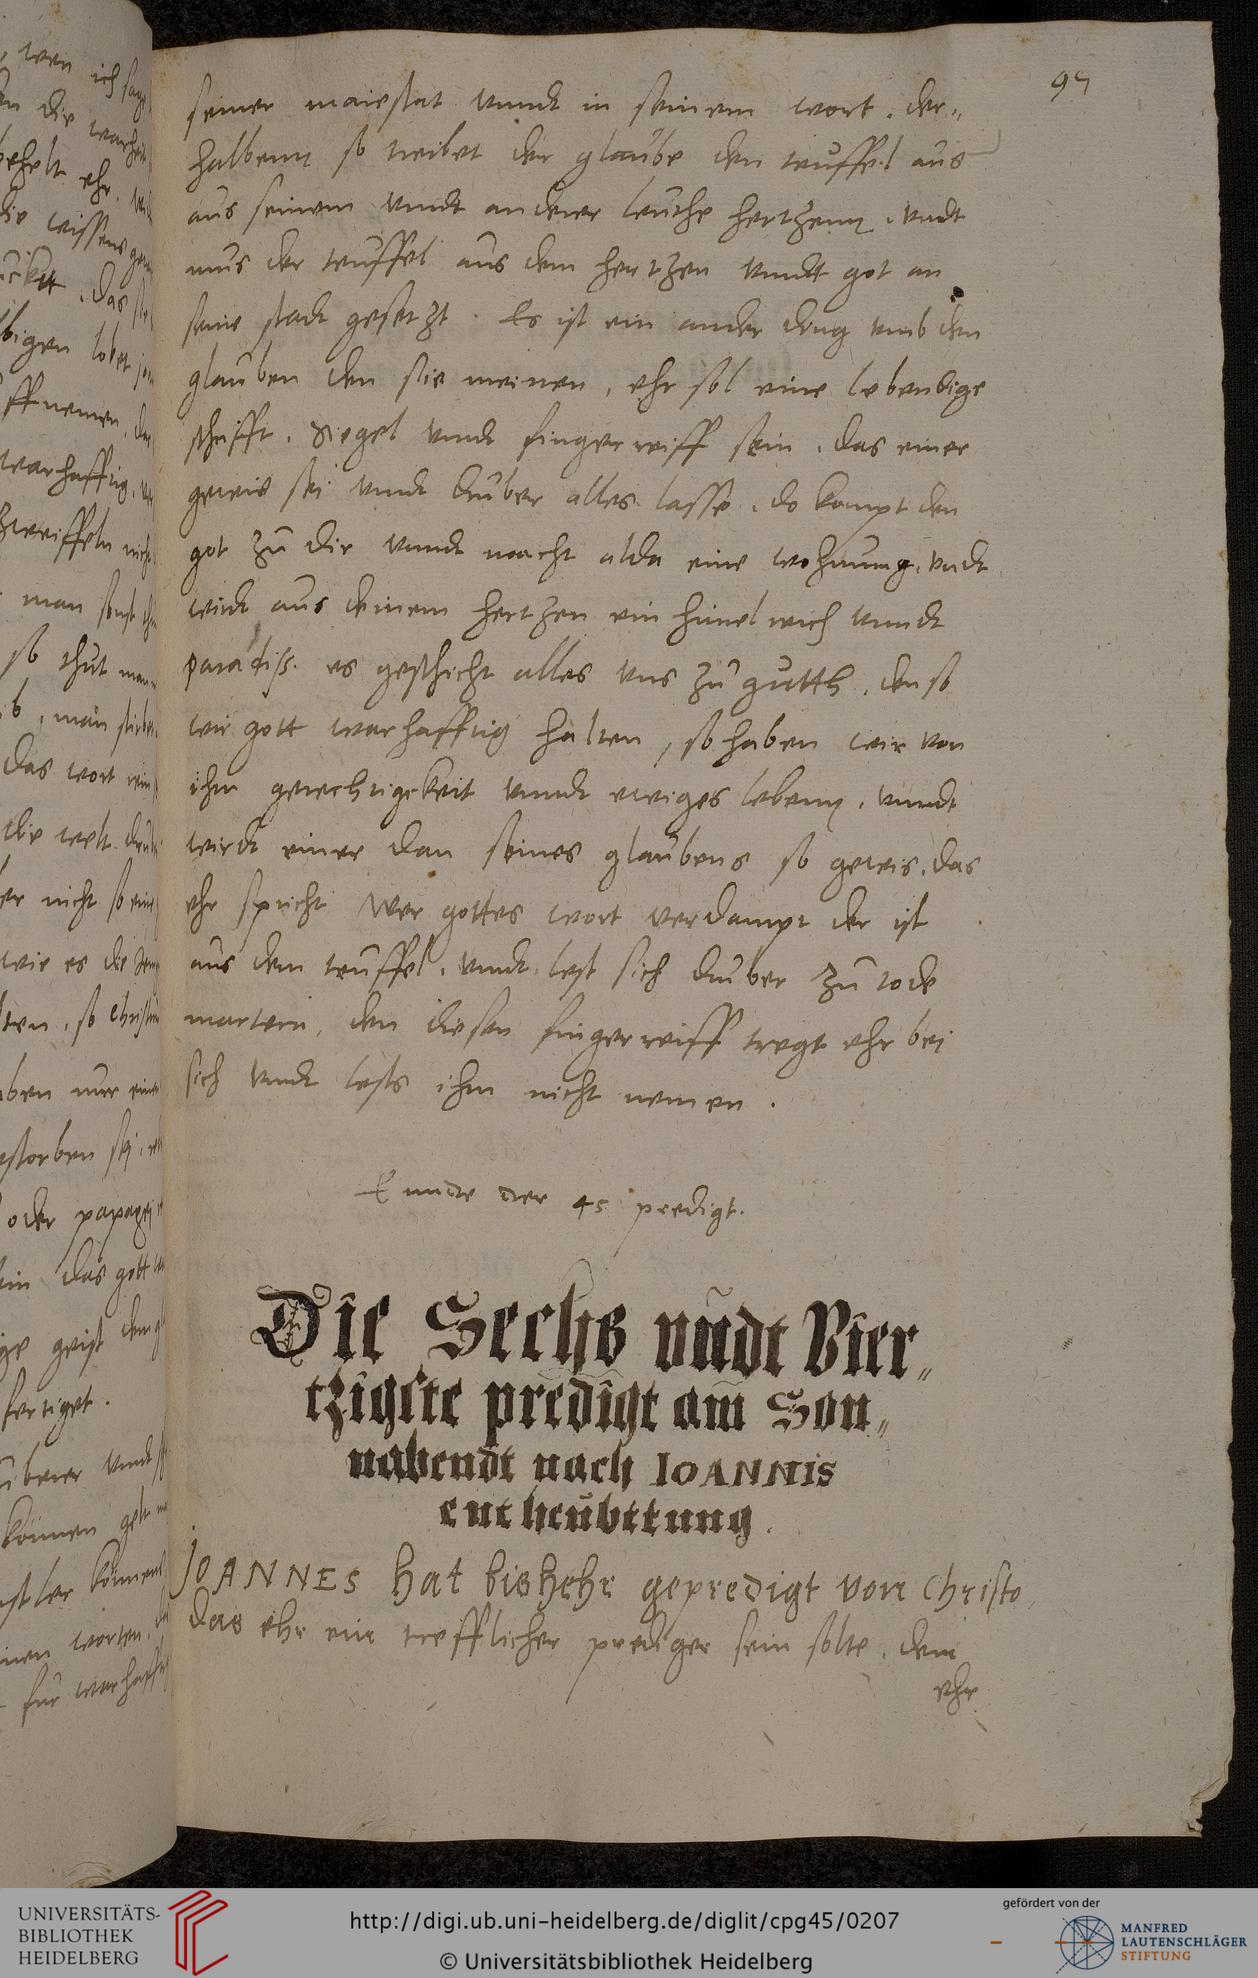 95
seiner maiestat vnndt in seinem wort, der„
halbenn so treibet der glaube den teuffel aus
aus seinem vndt anderer leuthe hertzenn, vndt
mus der teuffel aus dem hertzen vnndt got an
seine stadt gesetzt. Es ist ein ander ding vmb den
glauben den sie meinen, ehr sol eine lebendige
schrifft, Siegel vndt fingerreiff sein, das einer
gewis sei vndt druber alles lasse, do kompt den
got zu dir vnndt macht alda eine wohnung, vndt
wirdt aus deinem hertzen ein himelreich vnndt
paradiss. es geschicht alles vns zu gutth, den so
wir gott warhafftig halten, so haben wir von
ihm gerechtigckeit vnndt ewiges lebenn, vnndt
wirdt einer dan seines glaubens so gewis, das
ehr spricht Wer gottes wort verdampt der ist
aus dem teuffel, vnndt lest sich druber zu tode
martern, den diesen fingerreiff tregt ehr bei
sich vndt lests ihm nicht nemen.
Ennde der 45 predigt.
Die Sechs vndt Vier„
tzigste predigt am Son„
nabendt nach IOANNIS
entheubttung.
JOANNES hat bishehr gepredigt von Christo,
das ehr ein trefflicher prediger sein solte, den
ehr
UNIVERSITÄTS-
BIBLIOTHEK
HEIDELBERG
http://digi.ub.uni-heidelberg.de/diglit/cpg45/0207
© Universitätsbibliothek Heidelberg
gefördert von der
MANFRED
LAUTENSCHLÄGER
STIFTUNG